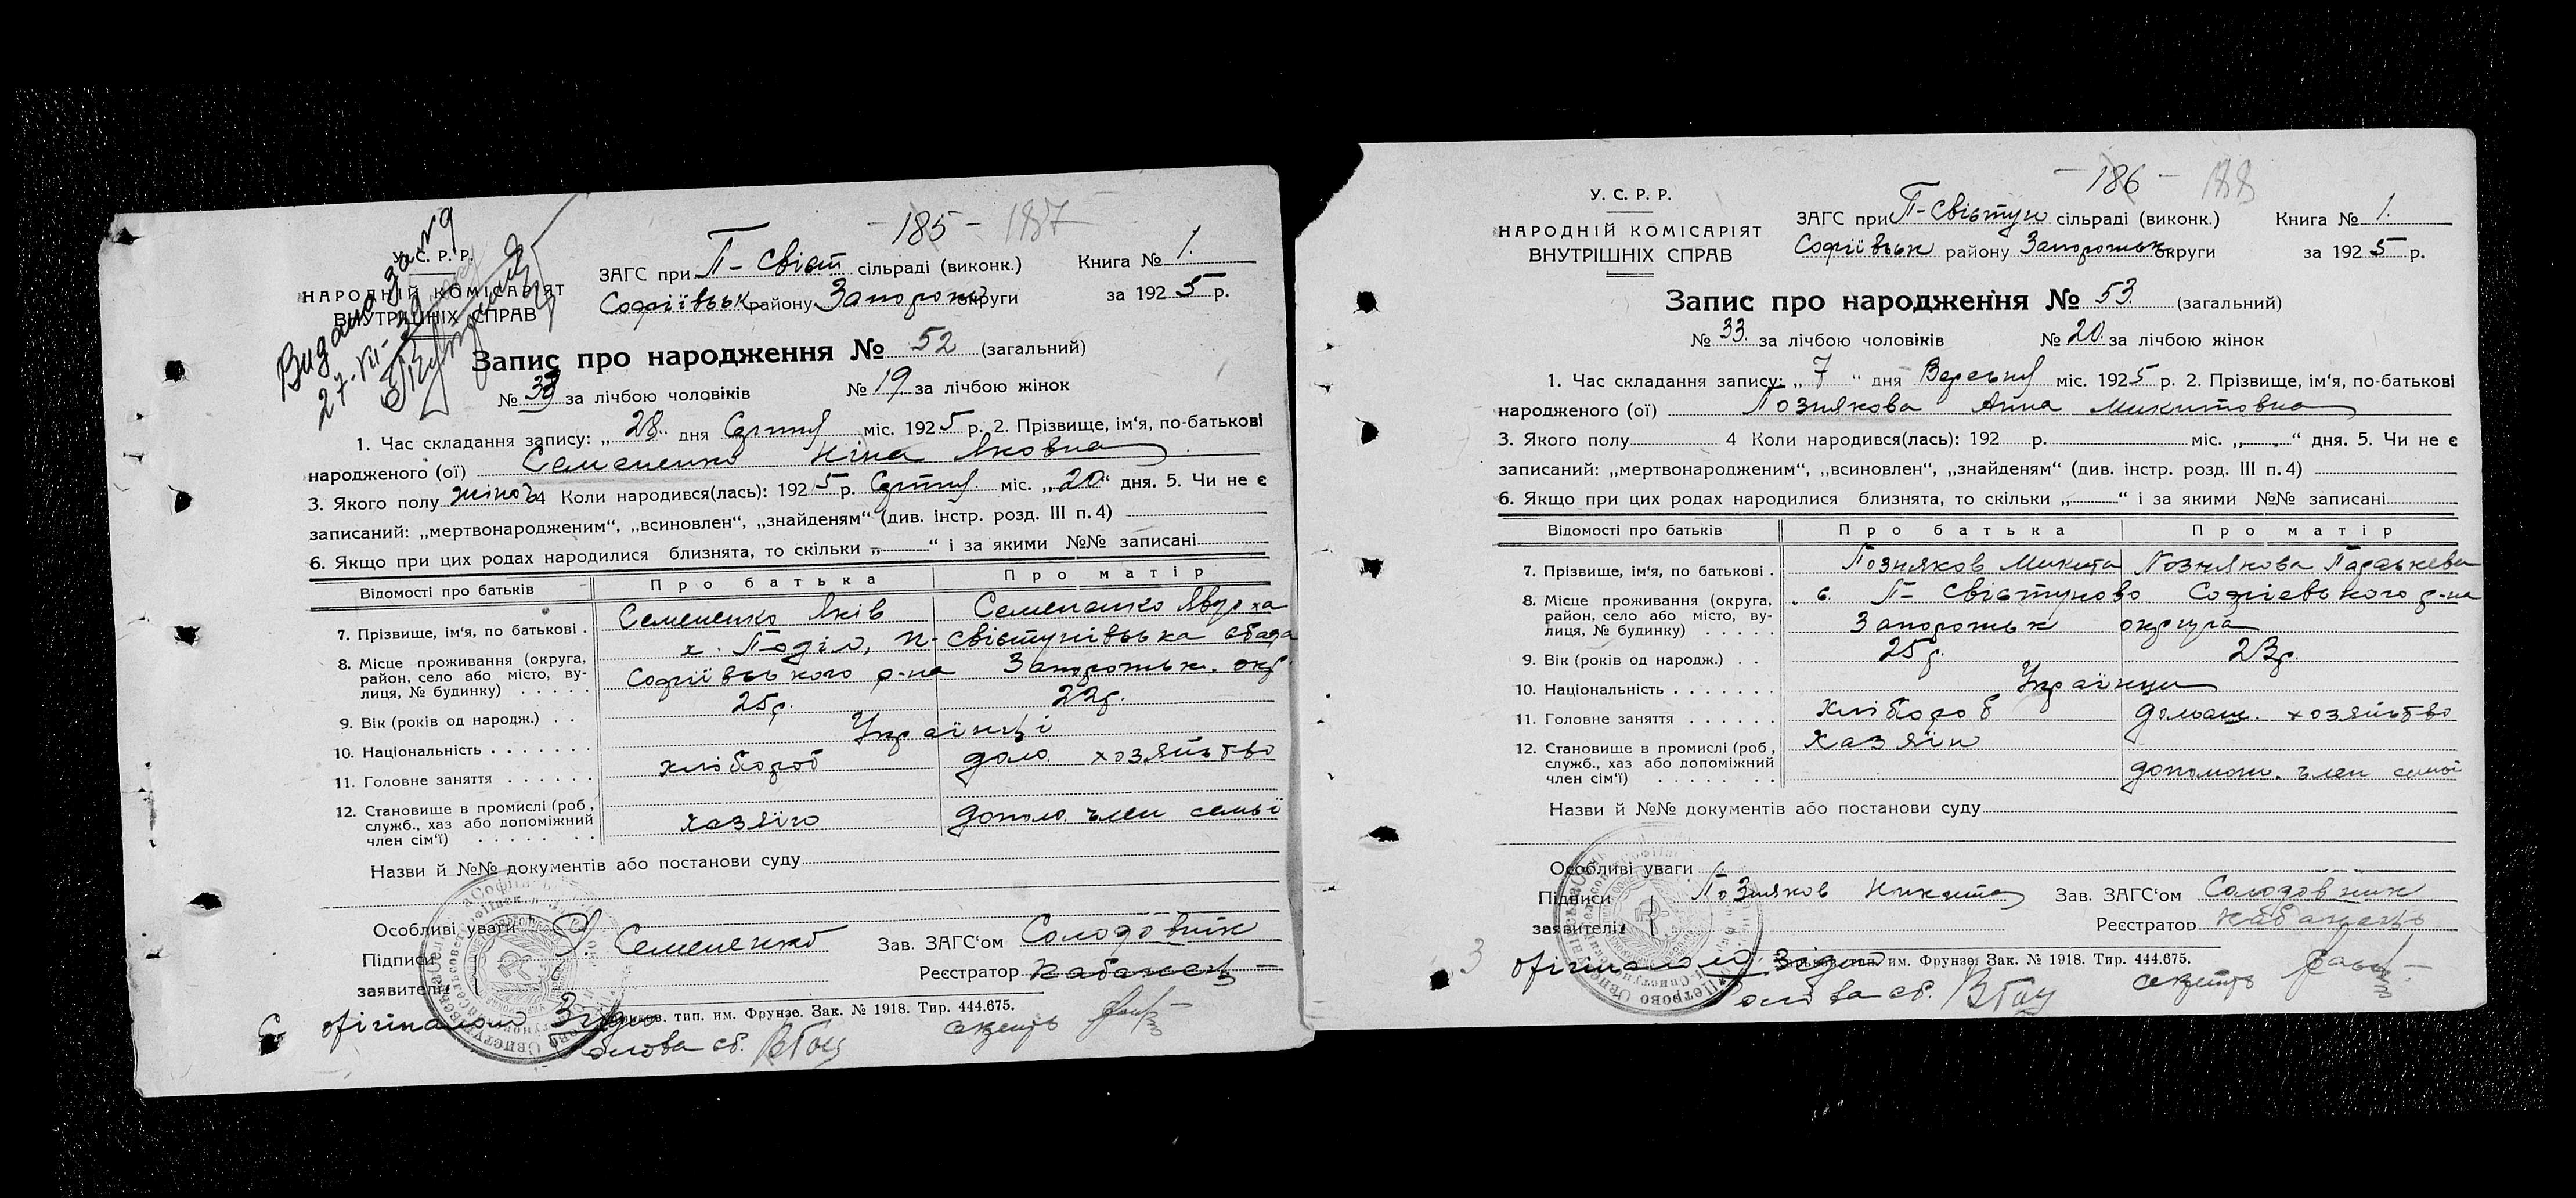 - 185 - 187
Видано за №9
27. VII-
У. С. Р. Р.
НАРОДНІЙ КОМІСАРІЯТ
ВНУТРІШНІХ СПРАВ
ЗАГС при П- Свіст сільраді (виконк.) Книга № 1.
Софіївськ району Запорожс округи за 1925 р.
Запис про народження № 52 (загальний)
№ 33 за лічбою чоловіків № 19 за лічбою жінок
1. Час складання запису: „28“ дня Серпня міс. 1925 р. 2. Прізвище, ім‘я, по-батькові
народженого (ої) Семененко Ніна Яковна
3. Якого полу жіноч 4 Коли народився(лась): 1925 р. Серпня міс. „20“ дня. 5. Чи не є
записаний: „мертвонародженим“, „всиновлен“, „знайденям“ (див. інстр. розд. III п. 4)
6. Якщо при цих родах народилися близнята, то скільки „ “ і за якими №№ записані
Відомості про батьків Про батька Про матір
7. Прізвище, ім‘я, по батькові . Семененко Яків Семененко Явдоха
8. Місце проживання (округа, район, село або місто, вулиця, № будинку) х. Поділ, П-Свістунівська сільрада
Софіївського р-на Запорожськ. окр.
9. Вік (років од народж.) . . 25 р. 22 р.
10. Національність Українці
11. Головне заняття хлібороб дом. хозяйство
12. Становище в промислі (роб, служб., хаз або допоміжний член сім‘ї) хазяїн допом. член семьї
Назви й №№ документів або постанови суду
Особливі уваги
Підписи заявителів Я. Семененко Зав. ЗАГС‘ом Солодовник
Реєстратор Кабанець
Харьков. тип. им. Фрунзе. Зак. № 1918. Тир. 444.675.
З оригіналом Згідно
Голова с/р. секрет.
- 186 - 188
У. С. Р. Р.
НАРОДНІЙ КОМІСАРІЯТ
ВНУТРІШНІХ СПРАВ
ЗАГС при П-Свістун сільраді (виконк.) Книга № 1.
Софіївськ району Запорожськ округи за 1925 р.
Запис про народження № 53 (загальний)
№ 33. за лічбою чоловіків № 20. за лічбою жінок
1. Час складання запису: „7“ дня Вересня міс. 1925 р. 2. Прізвище, ім‘я, по-батькові
народженого (ої) Познякова Анна Микитовна
3. Якого полу 4 Коли народився(лась): 192 р. міс. „ “ дня. 5. Чи не є
записаний: „мертвонародженим“, „всиновлен“, „знайденям“ (див. інстр. розд. III п. 4)
6. Якщо при цих родах народилися близнята, то скільки „ “ і за якими №№ записані
Відомості про батьків Про батька Про матір
7. Прізвище, ім‘я, по батькові . Позняков Микита Познякова Параскева
8. Місце проживання (округа, район, село або місто, вулиця, № будинку) с. П- Свістуново Софієвського р-на
Запорожськ округа
9. Вік (років од народж.) . . 25 р. 23 р.
10. Національність Українци
11. Головне заняття хлібороб домаш. хозяйство
12. Становище в промислі (роб, служб., хаз або допоміжний член сім‘ї) хазяїн допоможн. член семьї
Назви й №№ документів або постанови суду
Особливі уваги
Підписи заявителів Позняков Никита Зав. ЗАГС‘ом Солодовник
Реєстратор Кабанець
тип. им. Фрунзе. Зак. № 1918. Тир. 444.675.
З оригіналом Згідно
Голова с/р. секрет.